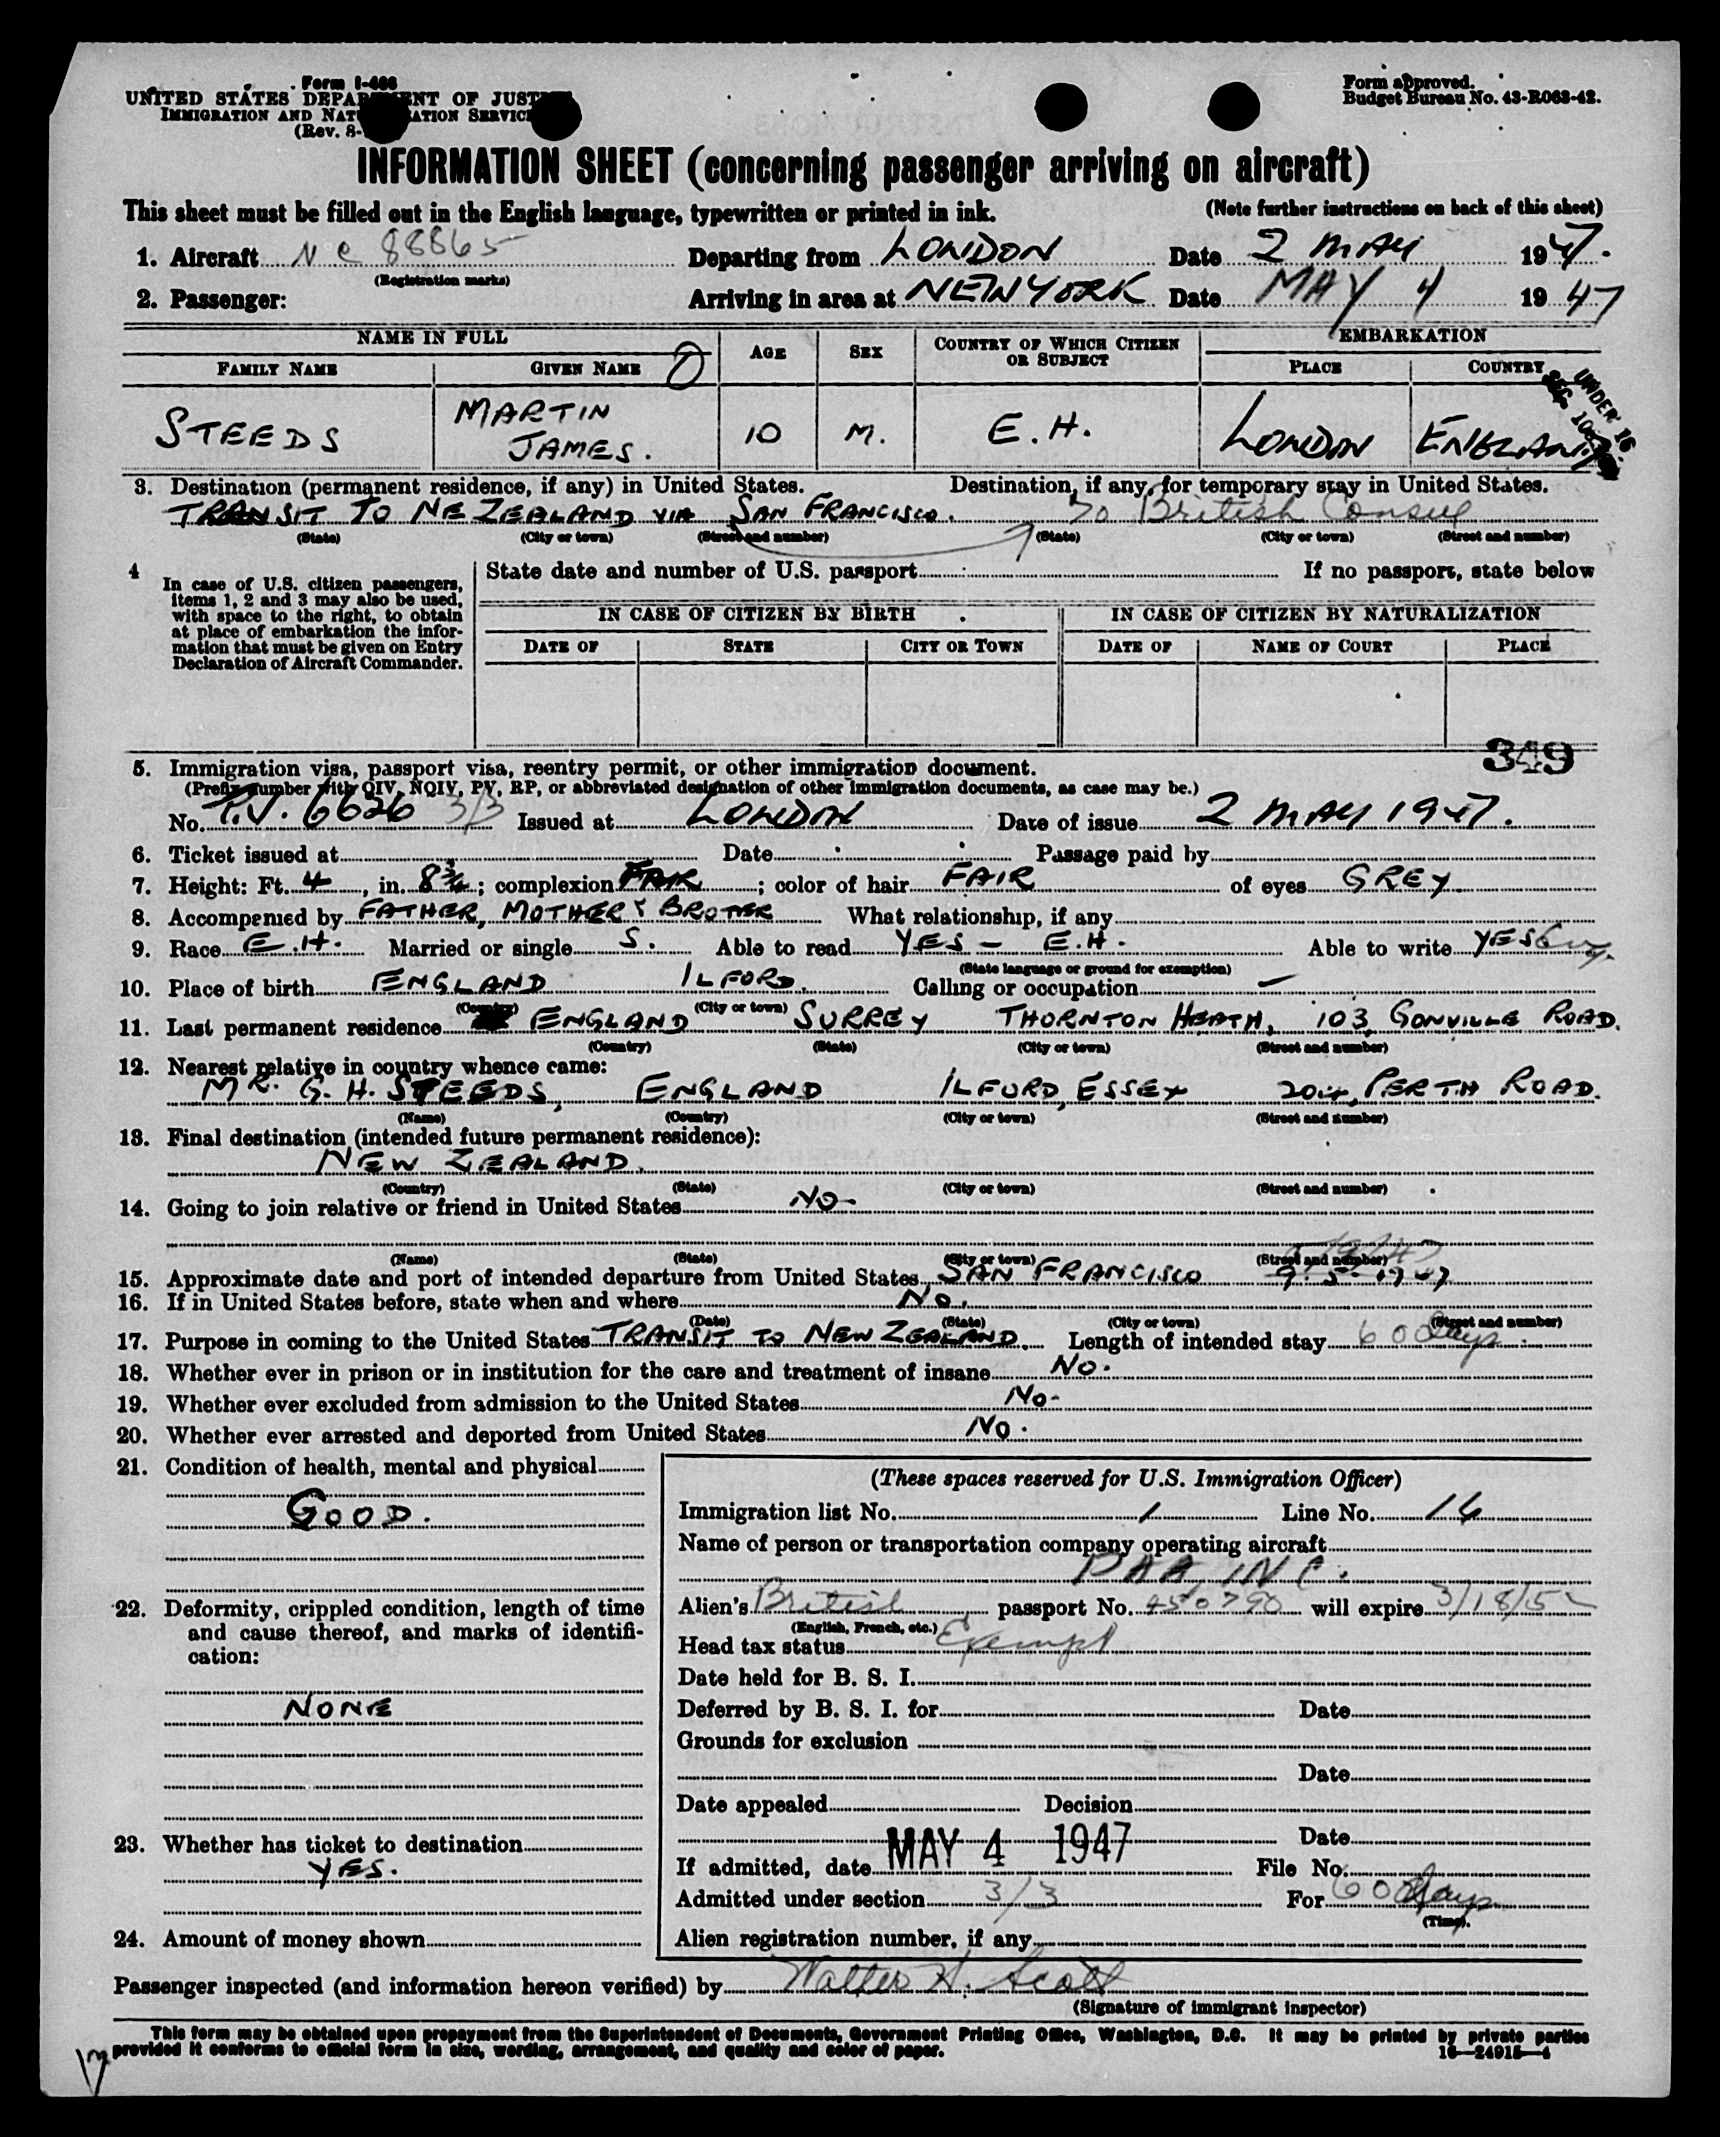 Form I-466
UNITED STATES DEPARTMENT OF JUSTICE
IMMIGRATION AND NATURALIZATION SERVICE
(Rev. 8-
Form approved.
Budget Bureau No. 43-R063-42.
INFORMATION SHEET (concerning passenger arriving on aircraft)
This sheet must be filled out in the English language, typewritten or printed in ink. (Note further instructions on back of this sheet)
1. Aircraft N C 88865 Departing from LONDON Date 2 MAY 1947.
(Registration marks)
2. Passenger: Arriving in area at NEW YORK Date MAY 4 1947
NAME IN FULL AGE SEX COUNTRY OF WHICH CITIZEN OR SUBJECT EMBARKATION
FAMILY NAME GIVEN NAME PLACE COUNTRY
UNDER 16
STEEDS MARTIN JAMES. 10 M. E.H. LONDON ENGLAND
3. Destination (permanent residence, if any) in United States. Destination, if any, for temporary stay in United States.
TRANSIT TO NE ZEALAND VIA SAN FRANCISCO. % British Consul
(State) (City or town) (Street and number) (State) (City or town) (Street and number)
4 In case of U.S. citizen passengers, items 1, 2 and 3 may also be used, with space to the right, to obtain at place of embarkation the information that must be given on Entry Declaration of Aircraft Commander.
State date and number of U.S. passport If no passport, state below
IN CASE OF CITIZEN BY BIRTH IN CASE OF CITIZEN BY NATURALIZATION
DATE OF STATE CITY OR TOWN DATE OF NAME OF COURT PLACE
349
5. Immigration visa, passport visa, reentry permit, or other immigration document.
(Prefix number with QIV, NQIV, PV, RP, or abbreviated designation of other immigration documents, as case may be.)
No. P.V. 6626 3/3 Issued at LONDON Date of issue 2 MAY 1947.
6. Ticket issued at Date Passage paid by
7. Height: Ft. 4, in. 8¾; complexion FAIR; color of hair FAIR of eyes GREY.
8. Accompanied by FATHER, MOTHER & BROTER What relationship, if any
9. Race E.H. Married or single S. Able to read YES - E.H. Able to write YES Eng.
(State language or ground for exemption)
10. Place of birth ENGLAND ILFORD. Calling or occupation —
(Country) (City or town)
11. Last permanent residence ENGLAND SURREY THORNTON HEATH, 103, GONVILLE ROAD.
(Country) (State) (City or town) (Street and number)
12. Nearest relative in country whence came:
MR. G. H. STEEDS, ENGLAND ILFORD, ESSEX 204, PERTH ROAD.
(Name) (Country) (City or town) (Street and number)
13. Final destination (intended future permanent residence):
NEW ZEALAND.
(Country) (State) (City or town) (Street and number)
14. Going to join relative or friend in United States NO-
(Name) (State) (City or town) (Street and number)
15. Approximate date and port of intended departure from United States SAN FRANCISCO 9-5-1947
16. If in United States before, state when and where No.
(Date) (State) (City or town) (Street and number)
17. Purpose in coming to the United States TRANSIT TO NEW ZEALAND. Length of intended stay 60 days
18. Whether ever in prison or in institution for the care and treatment of insane No.
19. Whether ever excluded from admission to the United States No-
20. Whether ever arrested and deported from United States No.
21. Condition of health, mental and physical
GOOD.
22. Deformity, crippled condition, length of time and cause thereof, and marks of identification:
NONE
23. Whether has ticket to destination
YES.
24. Amount of money shown
(These spaces reserved for U.S. Immigration Officer)
Immigration list No. 1 Line No. 16
Name of person or transportation company operating aircraft
PAA, INC.
Alien's British passport No. 450790 will expire 3/18/52
(English, French, etc.)
Head tax status Exempt
Date held for B. S. I.
Deferred by B. S. I. for Date
Grounds for exclusion
Date
Date appealed Decision
Date
If admitted, date MAY 4 1947 File No.
Admitted under section 3/3 For 60 days
(Time).
Alien registration number, if any
Passenger inspected (and information hereon verified) by Walter H. Scott
(Signature of immigrant inspector)
This form may be obtained upon prepayment from the Superintendent of Documents, Government Printing Office, Washington, D.C. It may be printed by private parties
provided it conforms to official form in size, wording, arrangement, and quality and color of paper. 16—24915—4